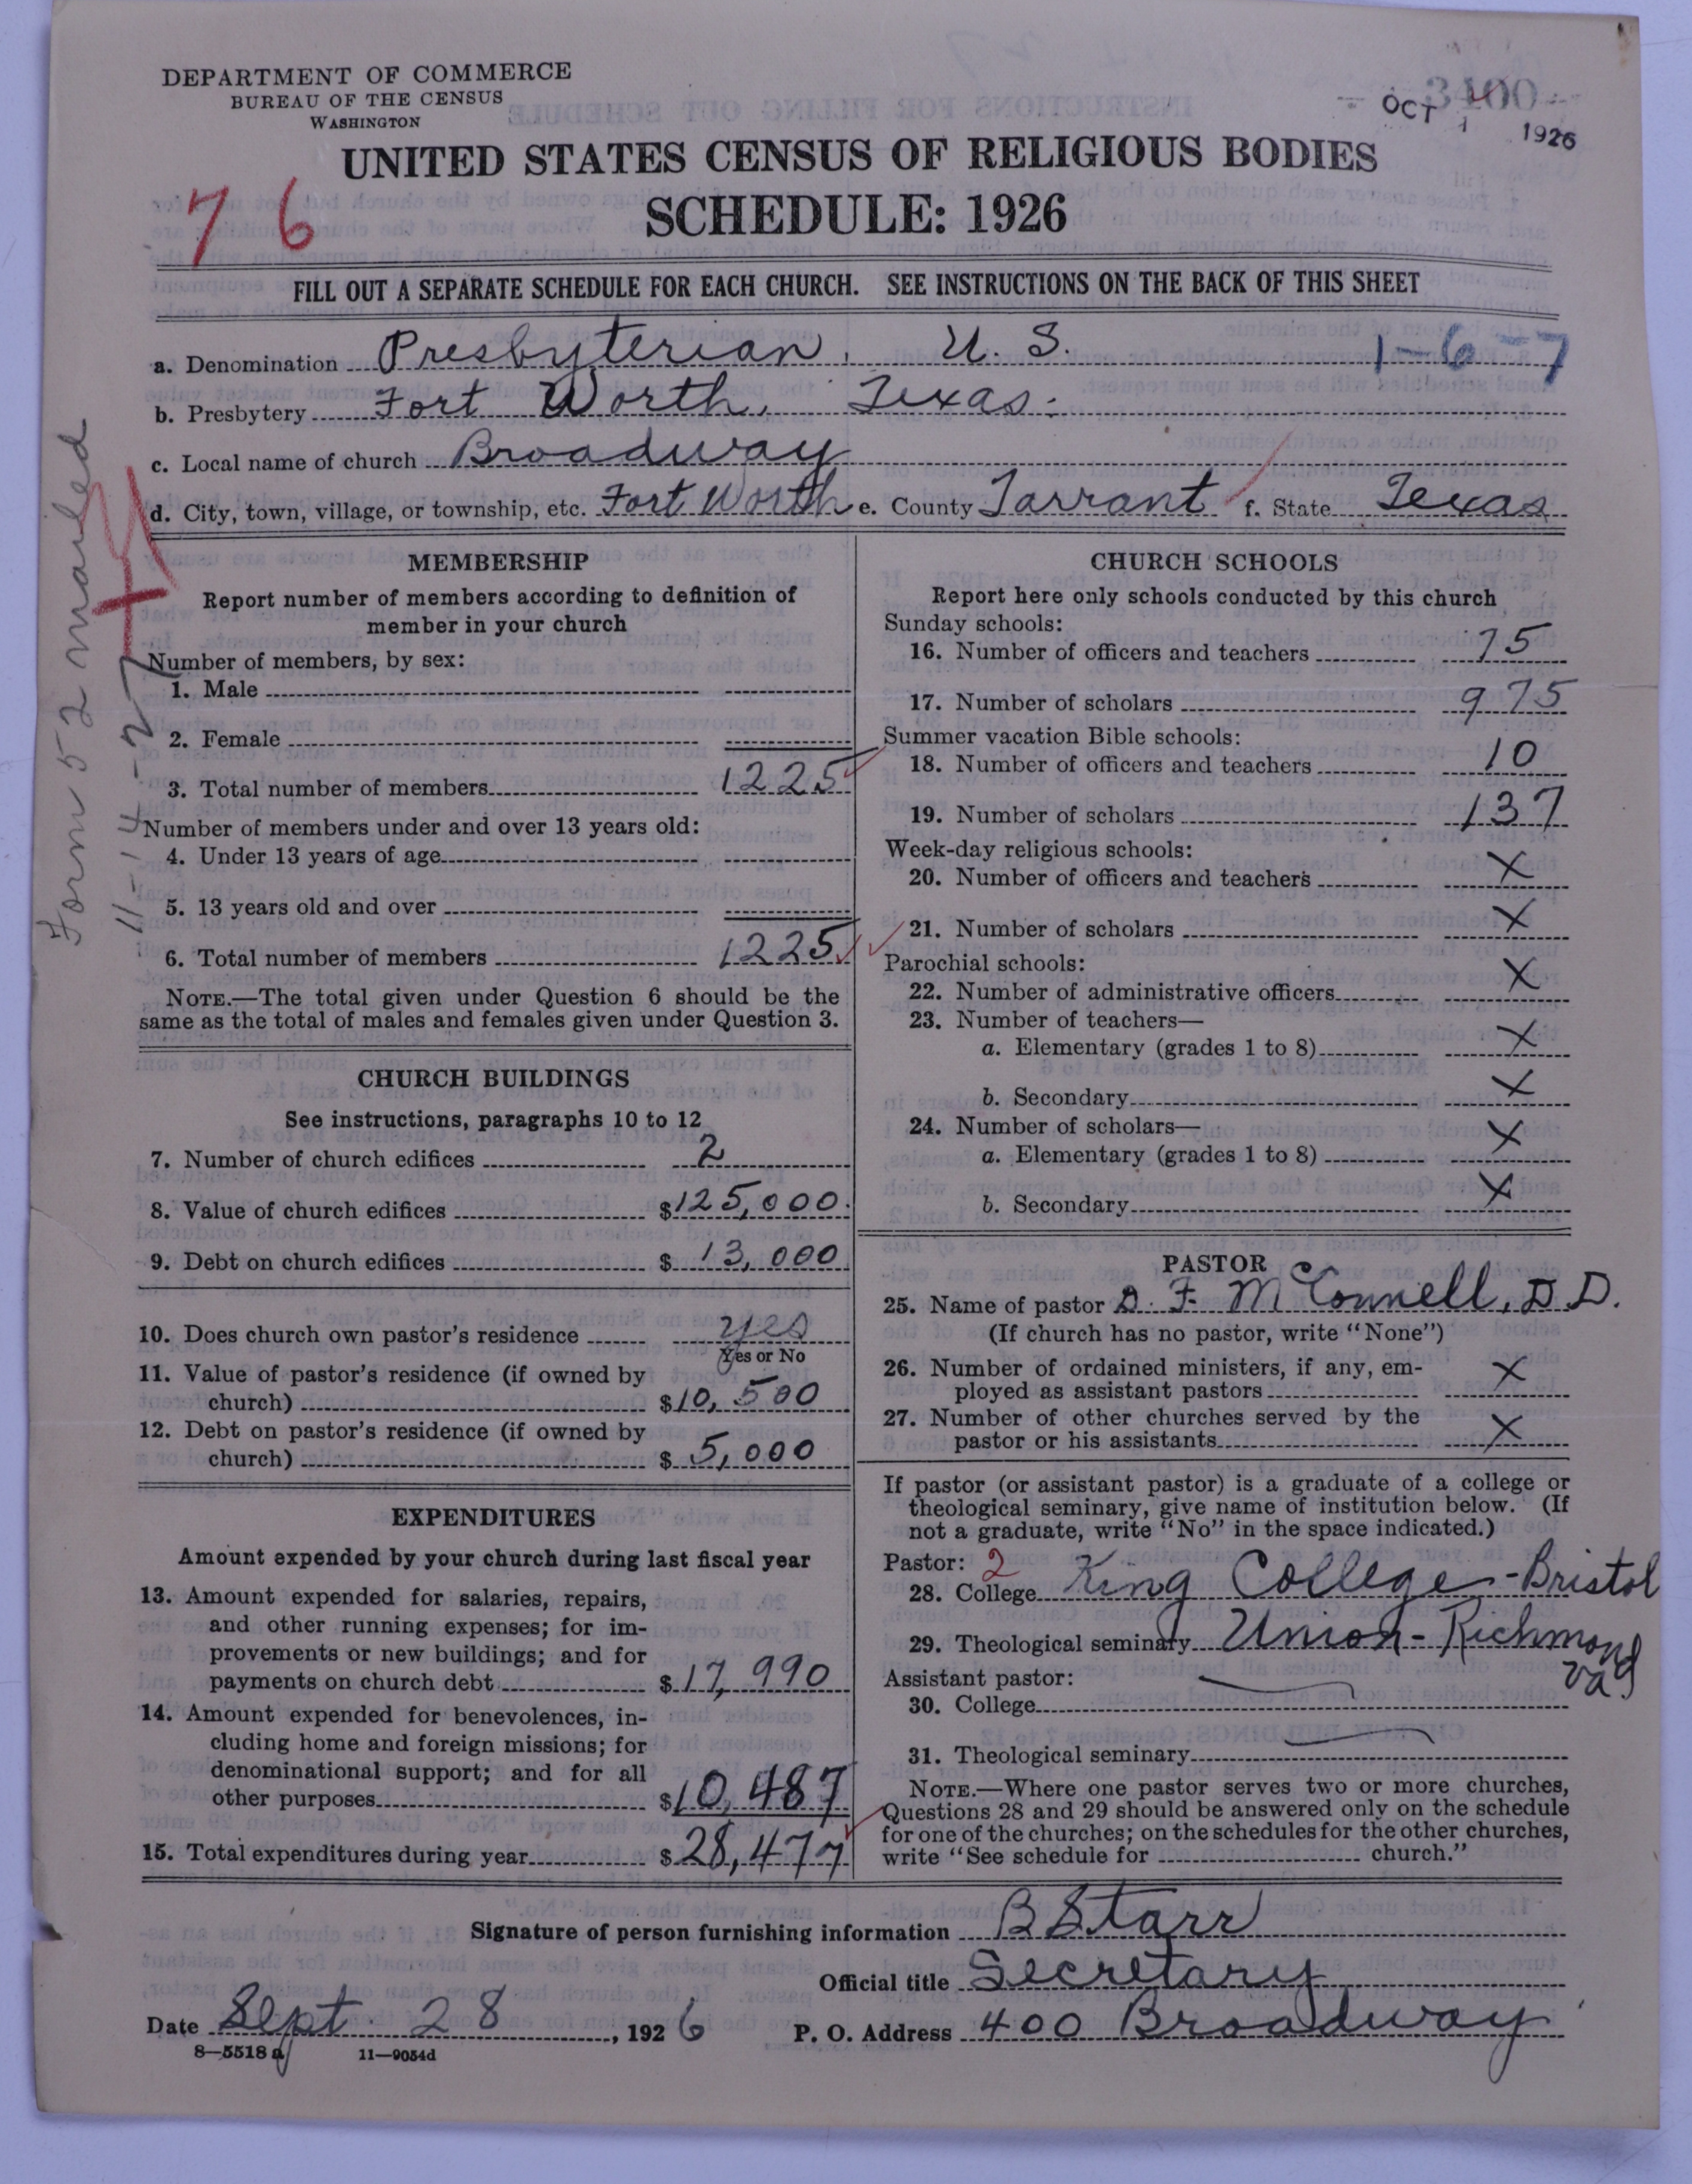 DEPARTMENT OF COMMERCE
BUREAU OF THE CENSUS
WASHINGTON
3400
OCT 1 1926
UNITED STATES CENSUS OF RELIGIOUS BODIES
SCHEDULE: 1926
76
FILL OUT A SEPARATE SCHEDULE FOR EACH CHURCH. SEE INSTRUCTIONS ON THE BACK OF THIS SHEET
a. Denomination Presbyterian, U. S. 1-6-7
b. Presbytery Fort Worth, Texas.
c. Local name of church Broadway
d. City, town, village, or township, etc. Fort Worth e. County Tarrant f. State Texas
Form 52 mailed
11-14-27
MEMBERSHIP
Report number of members according to definition of
member in your church
Number of members, by sex:
1. Male
2. Female
3. Total number of members 1225
Number of members under and over 13 years old:
4. Under 13 years of age
5. 13 years old and over
6. Total number of members 1225
NOTE.—The total given under Question 6 should be the
same as the total of males and females given under Question 3.
CHURCH BUILDINGS
See instructions, paragraphs 10 to 12
7. Number of church edifices 2
8. Value of church edifices $125,000.
9. Debt on church edifices $ 13,000
10. Does church own pastor's residence yes
Yes or No
11. Value of pastor's residence (if owned by
church) $10,500
12. Debt on pastor's residence (if owned by
church) $ 5,000
EXPENDITURES
Amount expended by your church during last fiscal year
13. Amount expended for salaries, repairs,
and other running expenses; for im-
provements or new buildings; and for
payments on church debt $17,990
14. Amount expended for benevolences, in-
cluding home and foreign missions; for
denominational support; and for all
other purposes $10,487
15. Total expenditures during year $28,477
CHURCH SCHOOLS
Report here only schools conducted by this church
Sunday schools:
16. Number of officers and teachers 75
17. Number of scholars 975
Summer vacation Bible schools:
18. Number of officers and teachers 10
19. Number of scholars 137
Week-day religious schools:
20. Number of officers and teachers X
21. Number of scholars X
Parochial schools:
22. Number of administrative officers X
23. Number of teachers—
a. Elementary (grades 1 to 8) X
b. Secondary X
24. Number of scholars—
a. Elementary (grades 1 to 8) X
b. Secondary X
PASTOR
25. Name of pastor D. F. McConnell, D.D.
(If church has no pastor, write "None")
26. Number of ordained ministers, if any, em-
ployed as assistant pastors X
27. Number of other churches served by the
pastor or his assistants X
If pastor (or assistant pastor) is a graduate of a college or
theological seminary, give name of institution below. (If
not a graduate, write "No" in the space indicated.)
Pastor: 2
28. College King College - Bristol
29. Theological seminary Union - Richmond
Va
Assistant pastor:
30. College
31. Theological seminary
NOTE.—Where one pastor serves two or more churches,
Questions 28 and 29 should be answered only on the schedule
for one of the churches; on the schedules for the other churches,
write "See schedule for church."
Signature of person furnishing information B Starr
Official title Secretary
Date Sept 28, 1926 P. O. Address 400 Broadway
8—5518 a 11—9054d